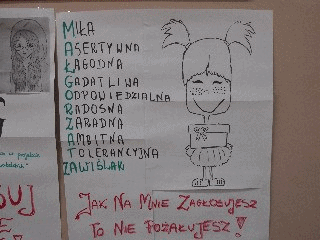 MIŁA
ASERTYWNA
ŁAGODNA
GADATLIWA
ODPOWIEDZIALNA
RADOSNA
ZARADNA
AMBITNA
TOLERANCYJNA
ZAWIŚLAK
JAK NA MNIE ZAGŁOSUJESZ
TO NIE POŻAŁUJESZ!